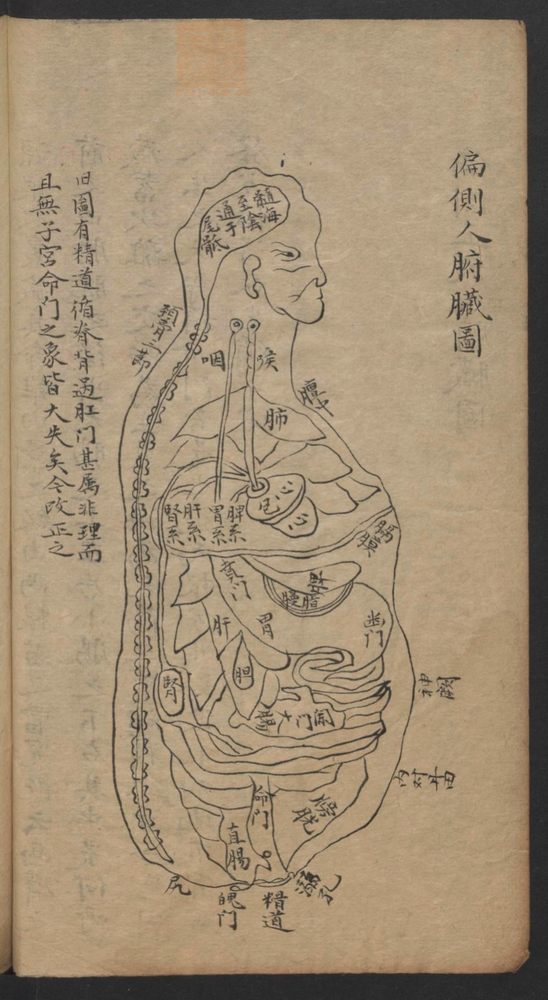 偏側人腑臟圖
髓海
至陰
通于
尾骶
頸骨三節
咽
喉
膻中
肺
心
包
心
脾系
胃系
肝系
腎系
膈膜
賁门
脾
胃
幽门
肝
胆
腎
闌门
大腸
神闕
内对丹田
命门
膀胱
直腸
尻
魄门
精道
溺孔
旧圖有精道循脊背過肛门甚属非理而
且無子宮命门之象皆大失矣今改正之